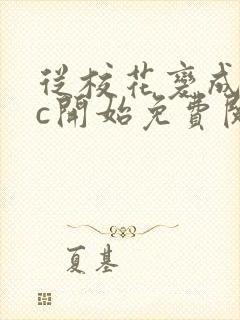 從校花變成
c開始免費閱
夏基